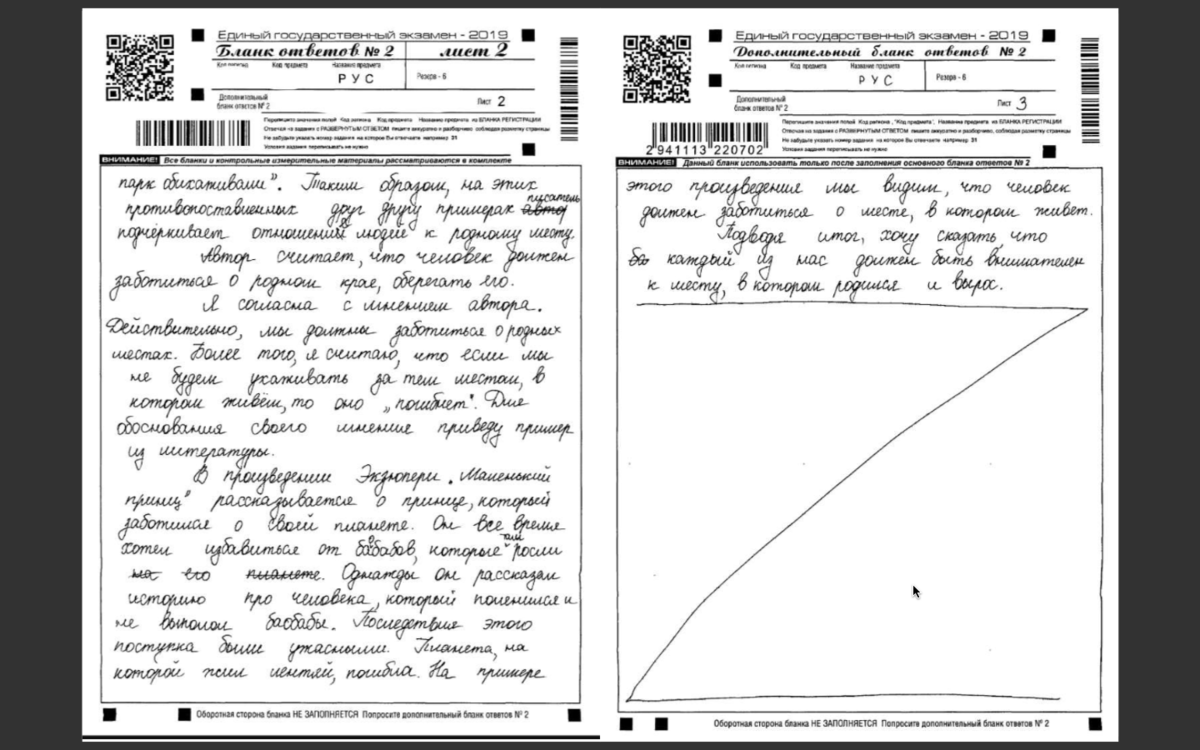 Единый государственный экзамен - 2019
Бланк ответов № 2 лист 2
Код региона Код предмета Название предмета
РУС
Резерв - 6
Дополнительный
бланк ответов № 2
Лист 2
Перепишите значения полей Код региона Код предмета Название предмета из БЛАНКА РЕГИСТРАЦИИ
Отвечая на задания с РАЗВЕРНУТЫМ ОТВЕТОМ пишите аккуратно и разборчиво соблюдая разметку страницы
Не забудьте указать номер задания на которое Вы отвечаете например 31
Условия задания переписывать не нужно
ВНИМАНИЕ! Все бланки и контрольные измерительные материалы рассматриваются в комплекте
парк обихаживали". Таким образом, на этих
противопоставленных друг другу примерах автор писатель
подчёркивает отношения людей к родному месту.
Автор считает, что человек должен
заботиться о родном крае, оберегать его.
Я согласна с мнением автора.
Действительно, мы должны заботиться о родных
местах. Более того, я считаю, что если мы
не будем ухаживать за тем местом, в
котором живём, то оно „погибнет". Для
обоснования своего мнения приведу пример
из литературы.
В произведении Экзюпери „Маленький
принц" рассказывается о принце, который
заботился о своей планете. Он все время
хотел избавиться от баобабов, которые там росли
на его планете. Однажды он рассказал
историю про человека, который поленился и
не выполол баобабы. Последствия этого
поступка были ужасными. Планета, на
которой жил лентяй, погибла. На примере
Оборотная сторона бланка НЕ ЗАПОЛНЯЕТСЯ Попросите дополнительный бланк ответов № 2
Единый государственный экзамен - 2019
Дополнительный бланк ответов № 2
Код региона Код предмета Название предмета
РУС
Резерв - 6
Дополнительный
бланк ответов № 2
Лист 3
2 941113 220702
Перепишите значения полей "Код региона", "Код предмета", Название предмета из БЛАНКА РЕГИСТРАЦИИ
Отвечая на задания с РАЗВЕРНУТЫМ ОТВЕТОМ пишите аккуратно и разборчиво соблюдая разметку страницы
Не забудьте указать номер задания на которое Вы отвечаете например 31
Условия задания переписывать не нужно
ВНИМАНИЕ! Данный бланк использовать только после заполнения основного бланка ответов № 2
этого произведения мы видим, что человек
должен заботиться о месте, в котором живет.
Подводя итог, хочу сказать что
каждый из нас должен быть внимателен
к месту, в котором родился и вырос.
Оборотная сторона бланка НЕ ЗАПОЛНЯЕТСЯ Попросите дополнительный бланк ответов № 2